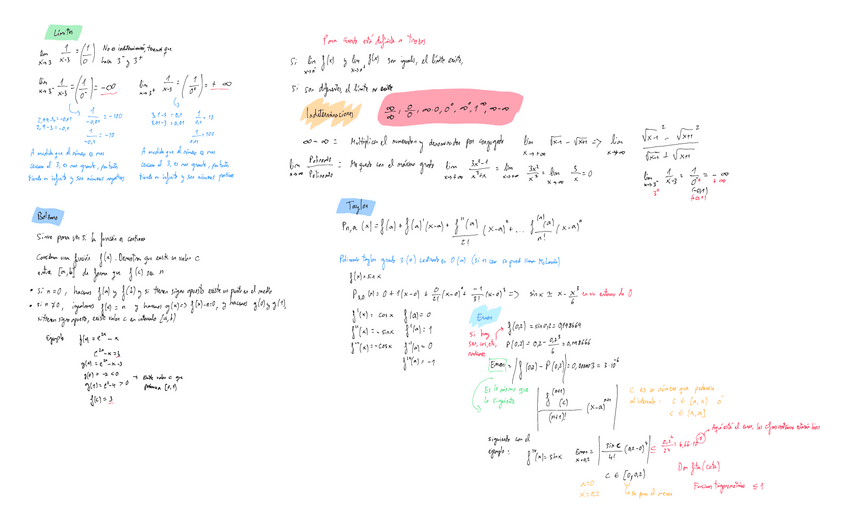 Límites
lim x→3 1/(x-3) = (1/0) No es indeterminación, tienes que
hacer 3⁻ y 3⁺
lim x→3⁻ 1/(x-3) = (1/0⁻) = -∞ lim x→3⁺ 1/(x-3) = (1/0⁺) = +∞
2,9-3 = -0,1 1/-0,01 = -100
1/-0,1 = -10
3,1-3 = 0,1 1/0,1 = 10
3,01-3 = 0,01 1/0,01 = 100
A medida que el número es más
cercano al 3, es más grande, por tanto
tiende a infinito y son números negativos
A medida que el número es más
cercano al 3, es más grande, por tanto
tiende a infinito y son números positivos
Para cuando está definida a trozos
Si lim f(x) y lim f(x) son iguales, el límite existe,
si son diferentes, el límite no existe
Indeterminaciones ∞/∞, 0/0, ∞·0, 0⁰, ∞⁰, 1^∞, ∞-∞
∞-∞ = Multiplicar el numerador y denominador por conjugado lim x→+∞ √x-1 - √x+1 => lim x→+∞ (√x-1² - √x+1²)/(√x-1 + √x+1)
lim x→+∞ Polinomio/Polinomio = Me quedo con el máximo grado lim x→+∞ (3x²-1)/(x³+x) = lim x→+∞ 3x²/x³ = lim x→+∞ 3/x = 0
lim x→3⁻ 1/(x-3) = 1/0 = -∞
3⁺ +∞
Bolzano
Sirve para ver si la función es continua
Considera una función f(x). Demostrar que existe un valor c
entre [a,b] de forma que f(c) sea n
• si n=0, hacemos f(a) y f(b) y si tienen signo opuesto existe un punto en el medio
• si n≠0, igualamos f(x) = n y hacemos g(x) => f(x)-n=0, y hacemos g(0) y g(1),
si tienen signo opuesto, existe valor c en intervalo [a,b]
Ejemplo f(x) = e²ˣ - x
e²ˣ - x = 3
g(x) = e²ˣ - x - 3
g(0) = -2 < 0
g(1) = e² - 4 > 0 → existe valor c que
pertenece [0,1]
f(c) = 3
Taylor
Pn,a (x) = f(a) + f(a)'(x-a) + f''(a)/2! (x-a)² + ... fⁿ(a)/n! (x-a)ⁿ
Polinomio Taylor grado 3 (n) centrado en 0 (a)
f(x) = sin x
P3,0 (x) = 0 + 1(x-0) + 0/2! (x-0)² + -1/3! (x-0)³ => sin x ≈ x - x³/6 en un entorno de 0
f'(x) = cos x f(0) = 0
f''(x) = -sin x f'(0) = 1
f'''(x) = -cos x f''(0) = 0
f'''(0) = -1
Error
Si hay
sen, cos, etc,
radianes
f(0,2) = sin 0,2 = 0,198669
P(0,2) = 0,2 - 0,2³/6 = 0,198666
Error = |f(0,2) - P(0,2)| = 0,000003 = 3·10⁻⁶
Es lo mismo que
lo siguiente
|f⁽ⁿ⁺¹⁾(c)/(n+1)! (x-a)ⁿ⁺¹|
C es un número que pertenece
al intervalo: c ∈ [a, x] o
c ∈ [x, a]
siguiendo con el
ejemplo: f'ᵛ(x) = sin x Error x=0,2 = |sin c/4! (0,2-0)⁴| ≤ 0,2⁴/24 = 6,66·10⁻⁵
Aquí está el error, las cifras
c ∈ [0,0,2]
a=0
x=0,2
Funciones trigonométricas ≤ 1